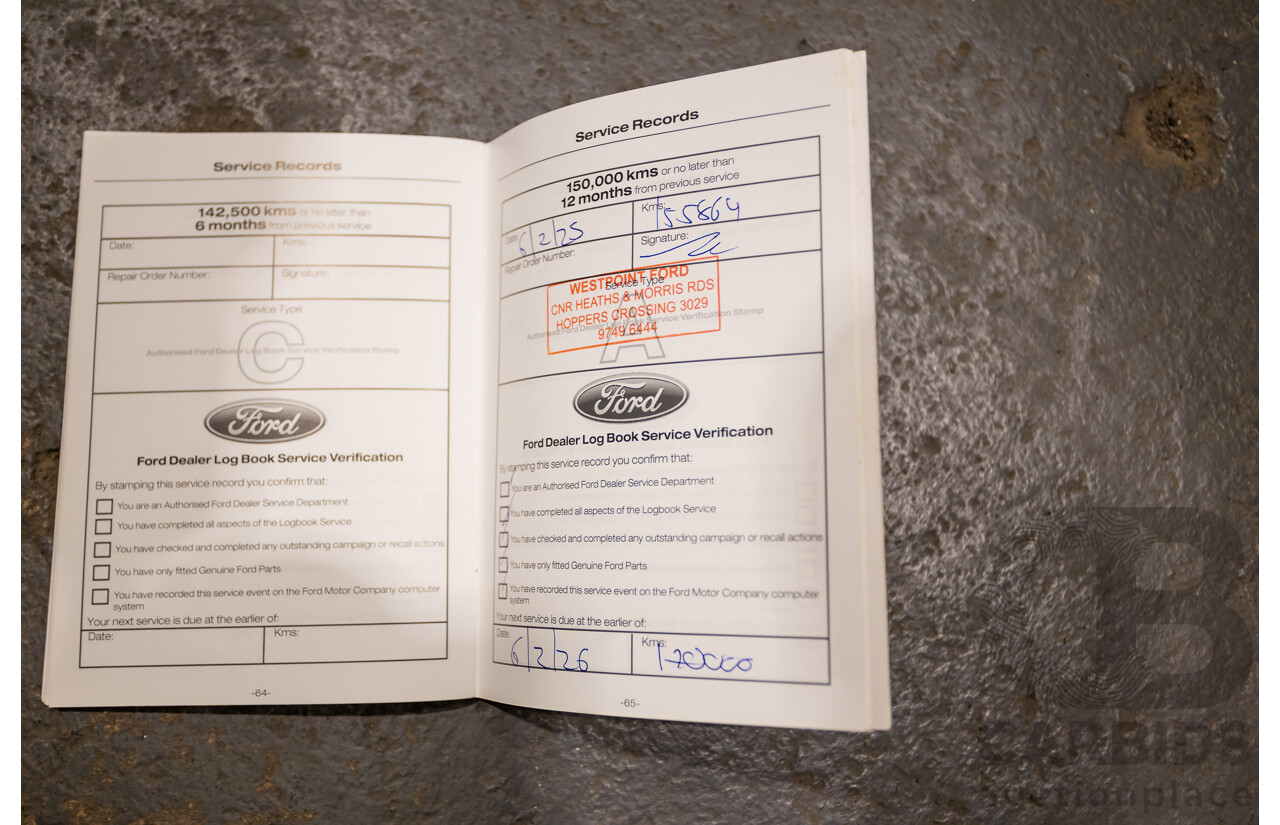 Service Records
142,500 kms or no later than
6 months from previous service
Date:
Kms:
Repair Order Number:
Signature:
Service Type
C
Authorised Ford Dealer Log Book Service Verification Stamp
Ford
Ford Dealer Log Book Service Verification
By stamping this service record you confirm that:
You are an Authorised Ford Dealer Service Department
You have completed all aspects of the Logbook Service
You have checked and completed any outstanding campaign or recall actions
You have only fitted Genuine Ford Parts
You have recorded this service event on the Ford Motor Company computer
system
Your next service is due at the earlier of:
Date:
Kms:
-64-
Service Records
150,000 kms or no later than
12 months from previous service
Date: 6/2/25
Kms: 155864
Repair Order Number:
Signature:
Service Type
WESTPOINT FORD
CNR HEATHS & MORRIS RDS
HOPPERS CROSSING 3029
9749 6444
A
Authorised Ford Dealer Log Book Service Verification Stamp
Ford
Ford Dealer Log Book Service Verification
By stamping this service record you confirm that:
You are an Authorised Ford Dealer Service Department
You have completed all aspects of the Logbook Service
You have checked and completed any outstanding campaign or recall actions
You have only fitted Genuine Ford Parts
You have recorded this service event on the Ford Motor Company computer
system
Your next service is due at the earlier of:
Date: 6/2/26
Kms: 170000
-65-
B
CARBIDS
auctionplace